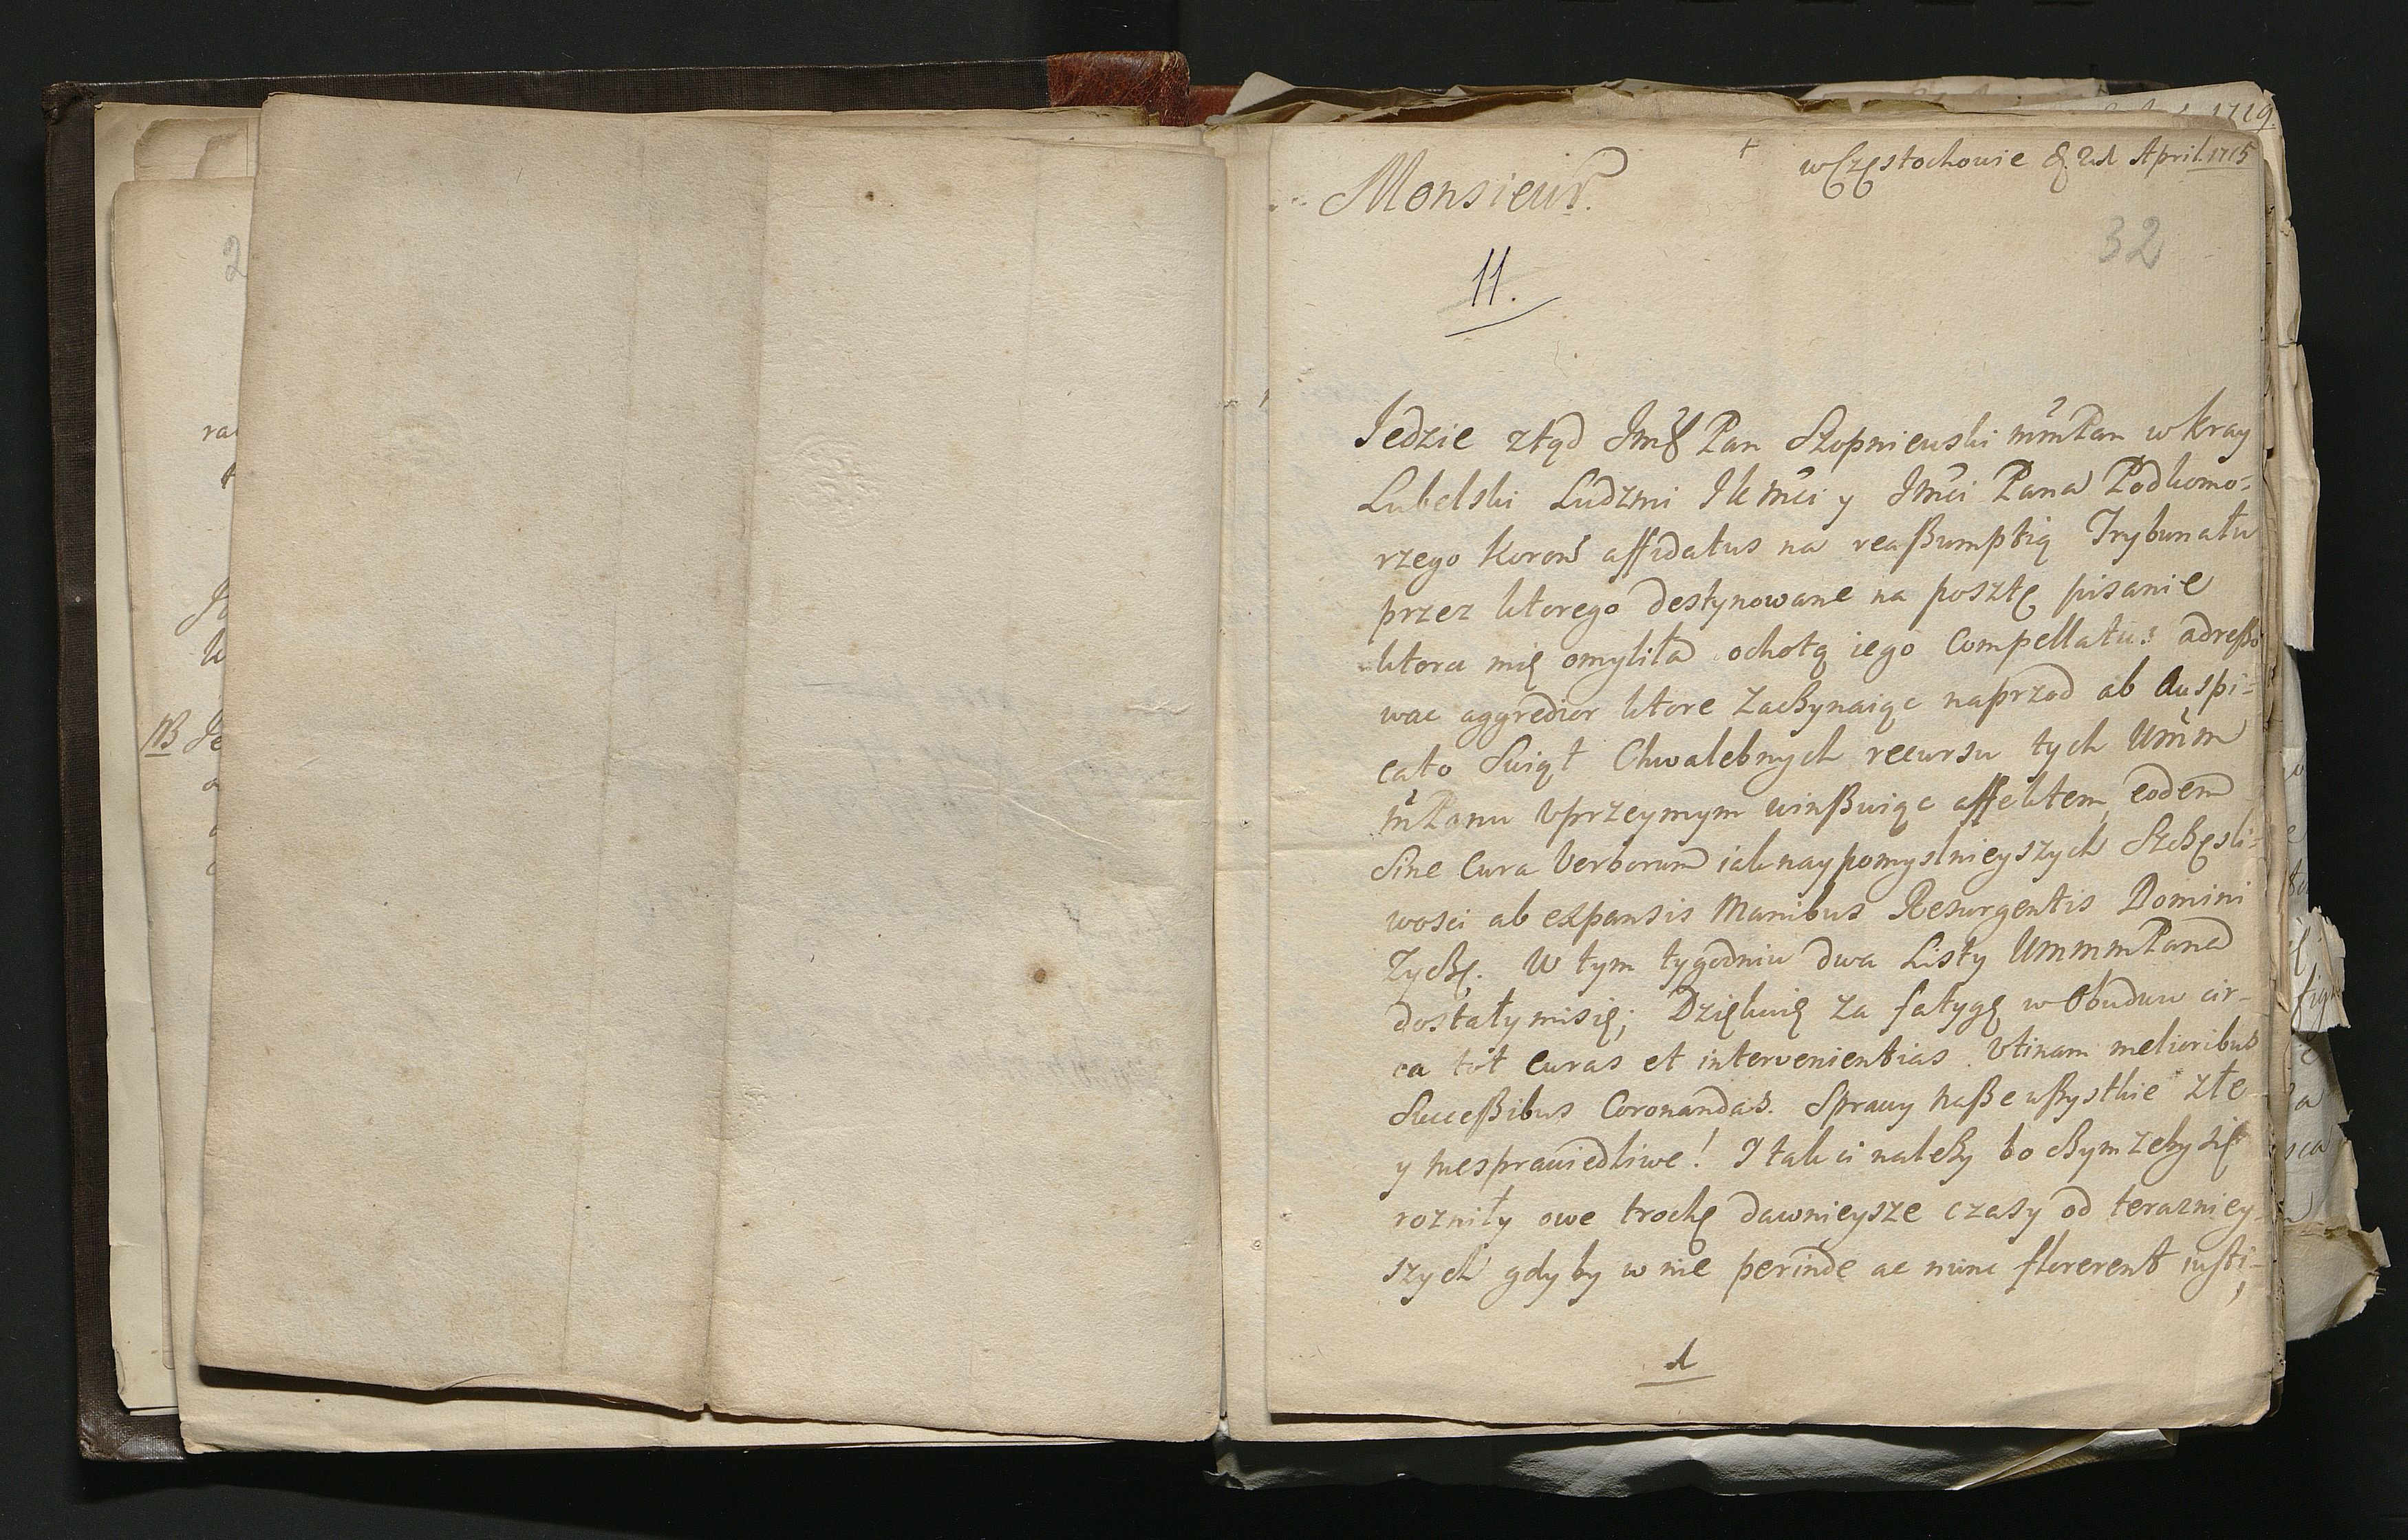 1719.
w Częstochowie d. 21 April. 1715
Monsieur.
32
11.
Jedzie ztąd Jmć Pan Słopniewski mmPan w kray
Lubelski Ludzmi Jkmci y Jmci Pana Podkomo-
rzego Koron affidatus na reaßumptią Trybunału
przez ktorego destynowane na posztę pisanie
ktora mię omyliła ochotą iego Compellatus adreßo
wac aggredior ktore Zaczynaiąc naprzod ab Auspi=
cato Swiąt Chwalebnych recursu tych Wmm
mPanu vprzeymym winßuiąc affektem, eodem
Sine Cura Verborum iaknaypomyslnieyszych Szczęsli=
wosci ab expansis Manibus Resurgentis Domini
Zyczę. W tym tygodniu dwa Listy WmmmPana
dostałymisię; Dziękuię za fatygę w Obudwu cir-
ca tot curas et intervenientias. Vtinam melioribus
Succeßibus Coronandas. Sprawy naße wßystkie złe
y niesprawiedliwe! I tak ci nalezy bo czym zeby się
rozniły owe trochę dawnieysze czasy od teraznieÿ-
szych gdyby w nie perinde ac nunc florerent iusti-
NB Je